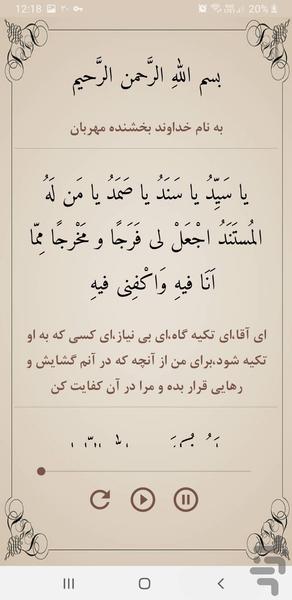 12:18 ۲۰ 20%
بسم اللهِ الرَّحمن الرَّحیم
به نام خداوند بخشنده مهربان
یا سَیِّدُ یا سَنَدُ یا صَمَدُ یا مَن لَهُ
المُستَنَدُ اجْعَلْ لی فَرَجًا و مَخْرجًا مِمّا
اَنَا فیهِ وَاکْفِنِی فیهِ
ای آقا،ای تکیه گاه،ای بی نیاز،ای کسی که به او
تکیه شود،برای من از آنچه که در آنم گشایش و
رهایی قرار بده و مرا در آن کفایت کن